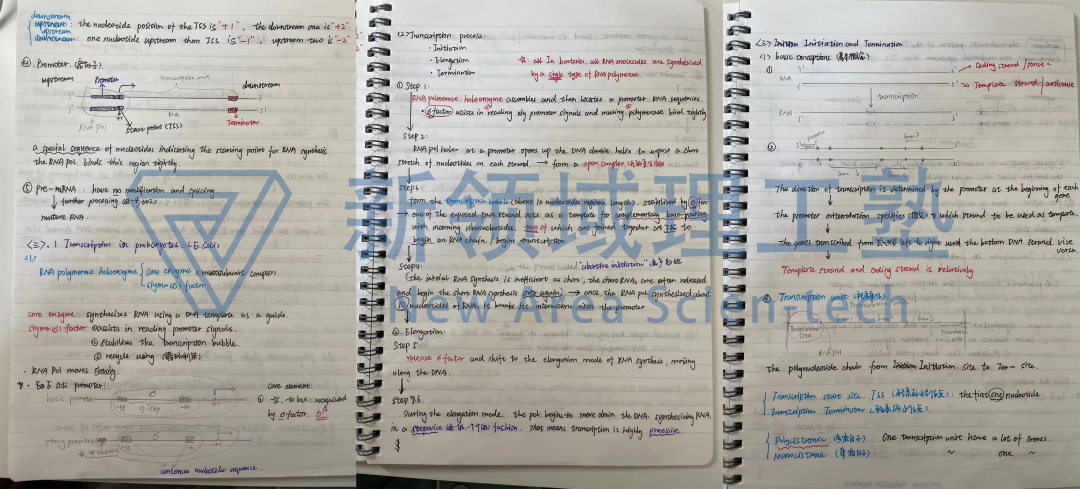 downstream
upstream : the nucleotide position of the TSS is "+1", the downstream one is "+2"
upstream
downstream : one nucleotide upstream than TSS is "-1", upstream two is "-2"
④ Promoter.
upstream promoter transcription unit
downstream
5' 3'
3' 5'
RNA pol RNA Terminator.
start point (TSS)
a special sequence of nucleotides indicating the starting point for RNA synthesis
the RNA pol. binds this region tightly.
⑤ Pre-mRNA : have no modification and splicing
↓ further processing
mature RNA.
<三>.1 Transcription in prokaryotes
(1)
RNA polymerase holoenzyme { core enzyme (multisubunit complex)
sigma (σ) factor
core enzyme : synthesizes RNA using a DNA template as a guide.
sigma(σ) factor ① assists in reading promoter signals.
① stabilizes the transcription bubble.
② recycle using
· RNA pol moves slowly.
promoter:
basic promoter
core element:
① -35, -10 box: recognized
by σ factor. σ⁷⁰
strong promoter
consensus nucleotide sequence.
(2) Transcription process:
· Initiation
· Elongation
· Termination
※: In bacteria, all RNA molecules are synthesized
by a single type of RNA polymerase.
① Step 1:
RNA polymerase holoenzyme assembles and then locates a promoter DNA sequences.
· σ factor assists in reading the promoter signals and making polymerase bind tightly
Step 2:
RNA pol holo- at a promoter opens up the DNA double helix to expose a short
stretch of nucleotides on each strand. → form a open complex
Step 3:
form the transcription bubble (about 10 nucleotides regions length). stabilized by σ factor
→ one of the exposed DNA strand acts as a template for complementary base-pairing
with incoming ribonucleotides. two of which are joined together at TSS to
begin an RNA chain. / begin transcription
Step 4: this process called "abortive initiation"
(the initial RNA synthesis is inefficient as short, the short RNAs are often released
and begin the short RNA synthesis once again) → once the RNA pol synthesized about
10 nucleotides of RNA, to breaks its interactions with the promoter
② Elongation:
Step 5
release σ factor and shift to the elongation mode of RNA synthesis, moving
along the DNA.
Step 6.
During the elongation mode. The pol begin to move down the DNA, synthesizing RNA,
in a stepwise fashion. That means transcription is highly processive.
<三> Initiation and Termination
(1) basic conceptions (基本概念)
①
5' 3' → coding strand / sense ~
RNA
3' 5' → Template strand / antisense
↓ transcription
②
promoter Gene 3
The direction of transcription is determined by the promoter at the beginning of each
gene
The promoter orientation specifies to which strand to be used as template.
The genes transcribed from left to right used the bottom DNA strand. vise
versa.
Template strand and coding strand is relatively
③ Transcription unit (转录单位)
Initiation
site
Termination
site
RNA pol
The polynucleotide chain from Initiation site to Ter~ site.
{ Transcription start site. TSS (转录起始位点) : the first one nucleotide
Transcription Terminator (转录终止位点)
{ Polycistronic (多顺反子) : One transcription unit have a lot of Genes.
Monocistronic (单顺反子) ~ one ~
新领域理工塾
New Area Scien-tech